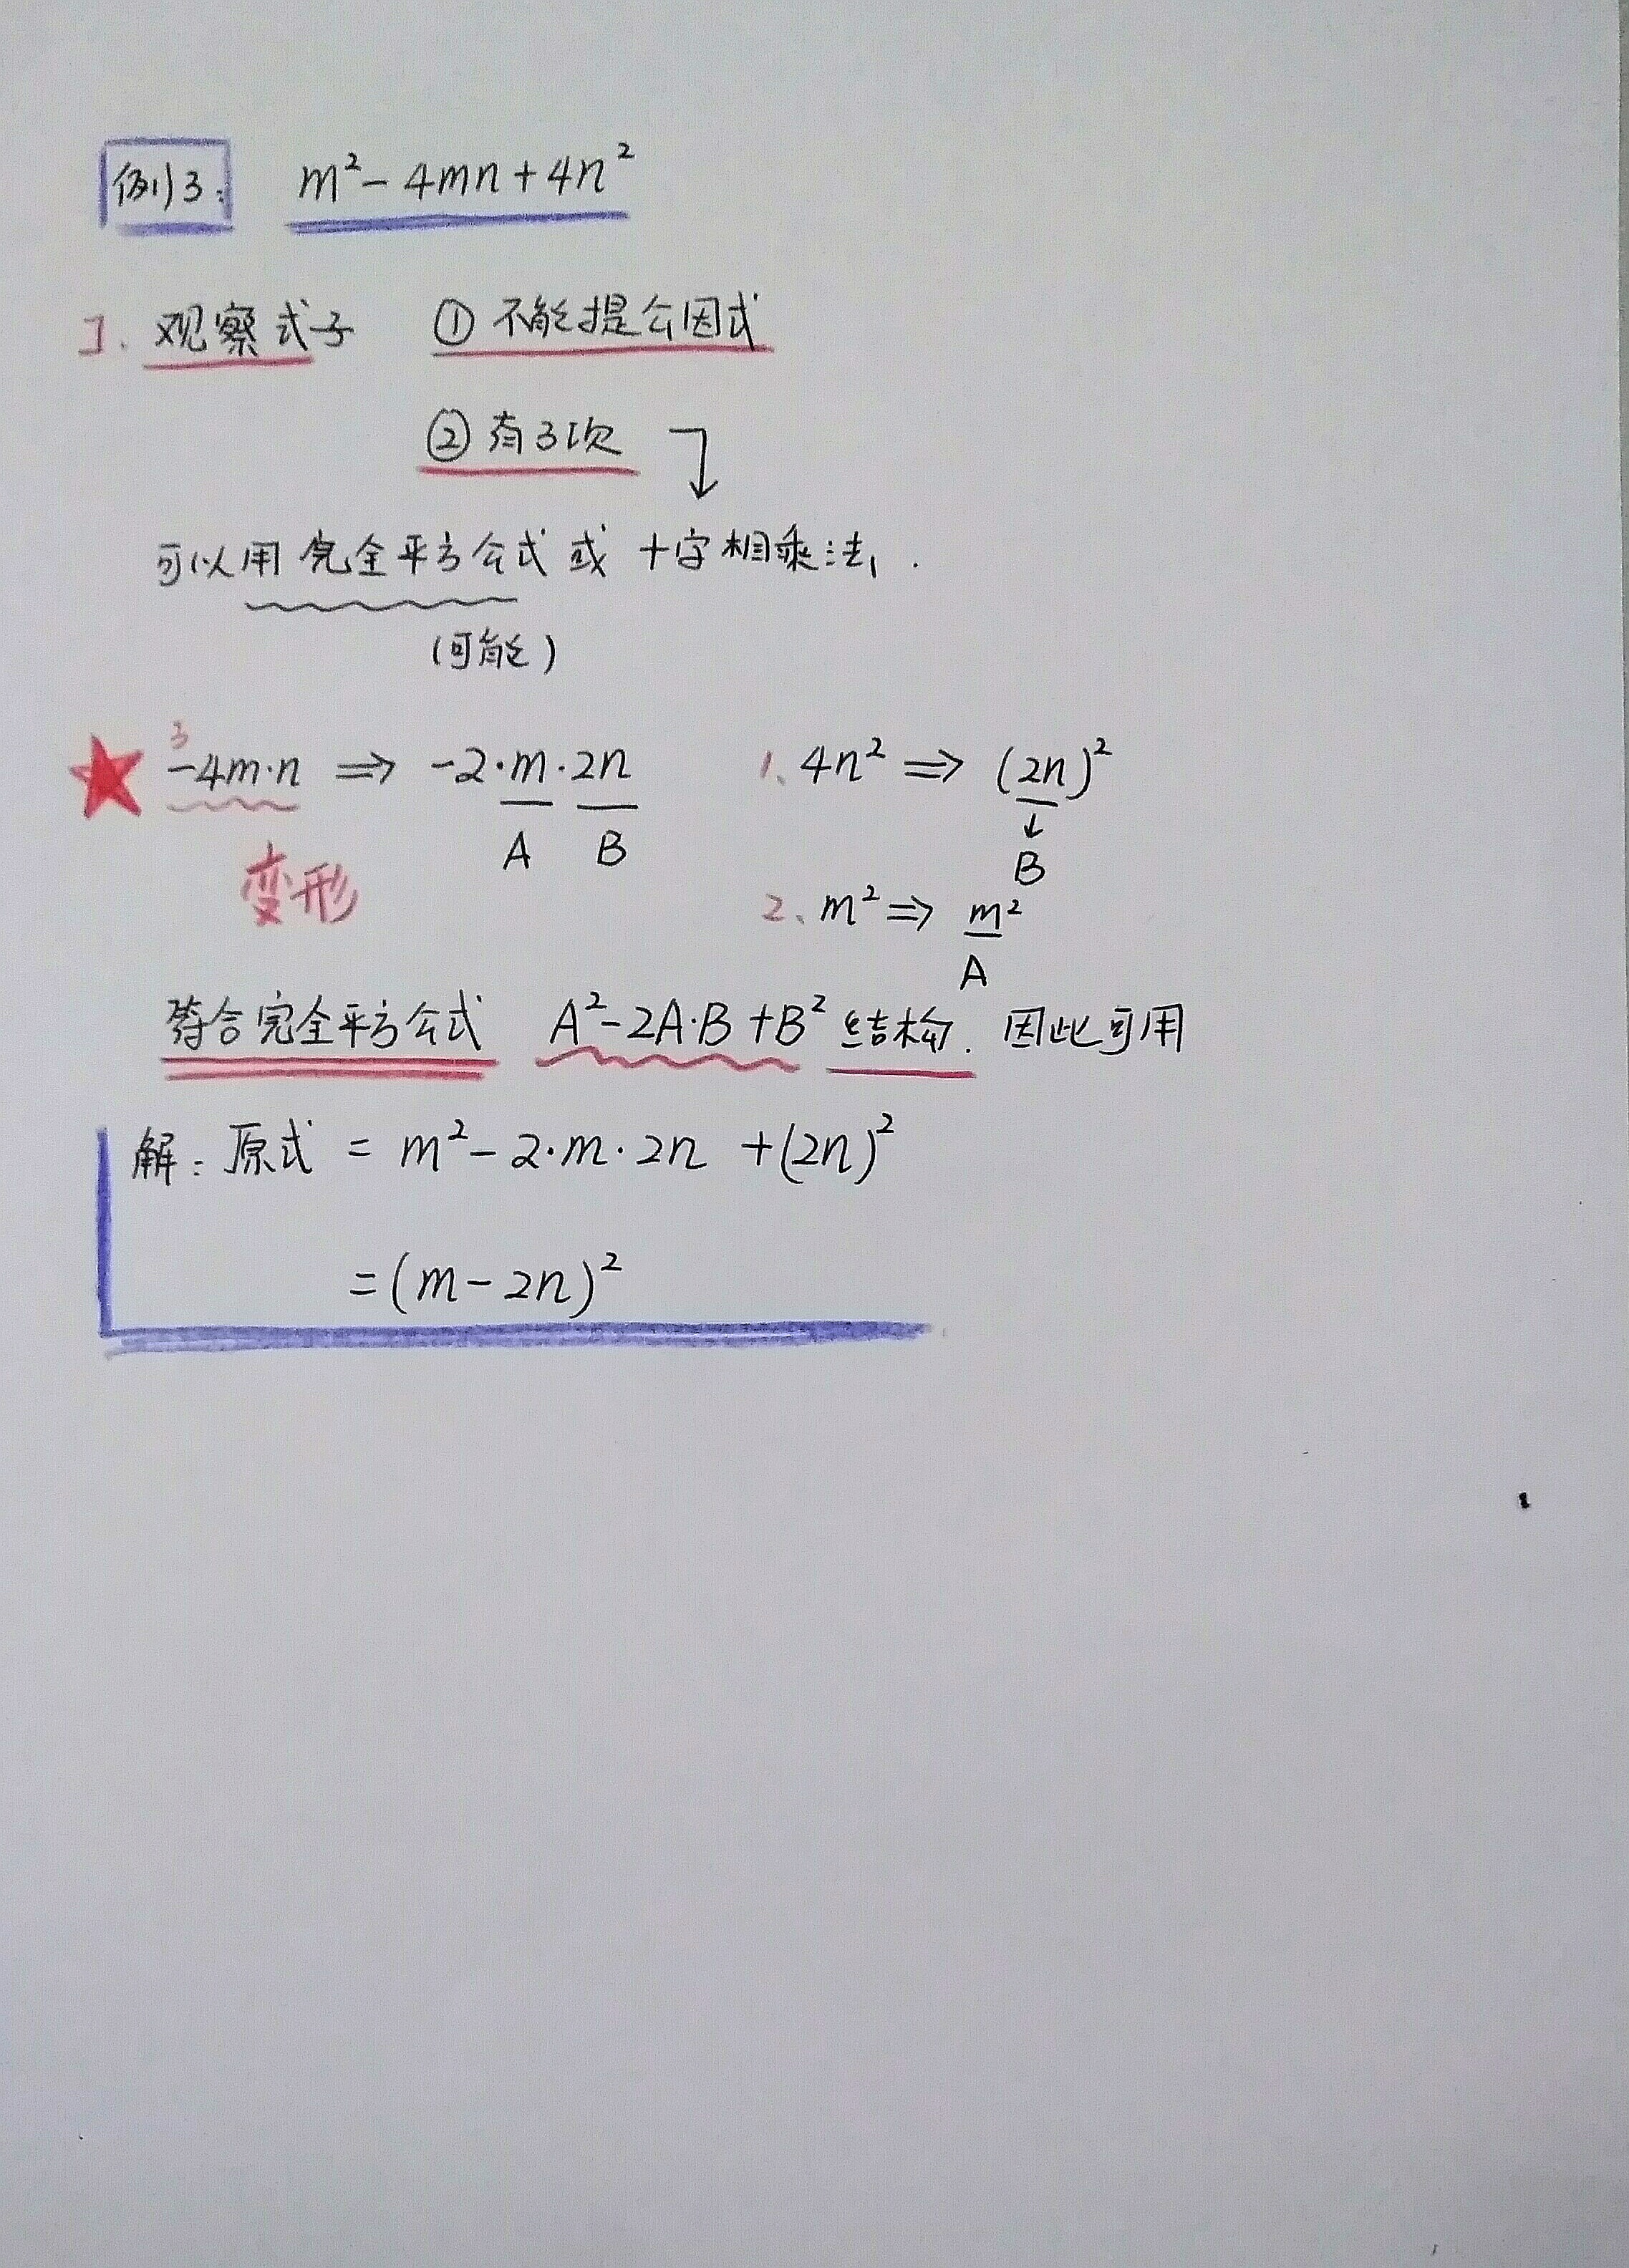 例3: m²-4mn+4n²
1. 观察式子 ① 不能提公因式
② 有3次
可以用完全平方公式 或 十字相乘法.
(可能)
3 -4m·n ⇒ -2·m·2n 1、4n² ⇒ (2n)²
A B ↓
B
变形 2、m² ⇒ m²
A
符合完全平方公式 A²-2A·B+B² 结构. 因此可用
解: 原式 = m²-2·m·2n +(2n)²
=(m-2n)²